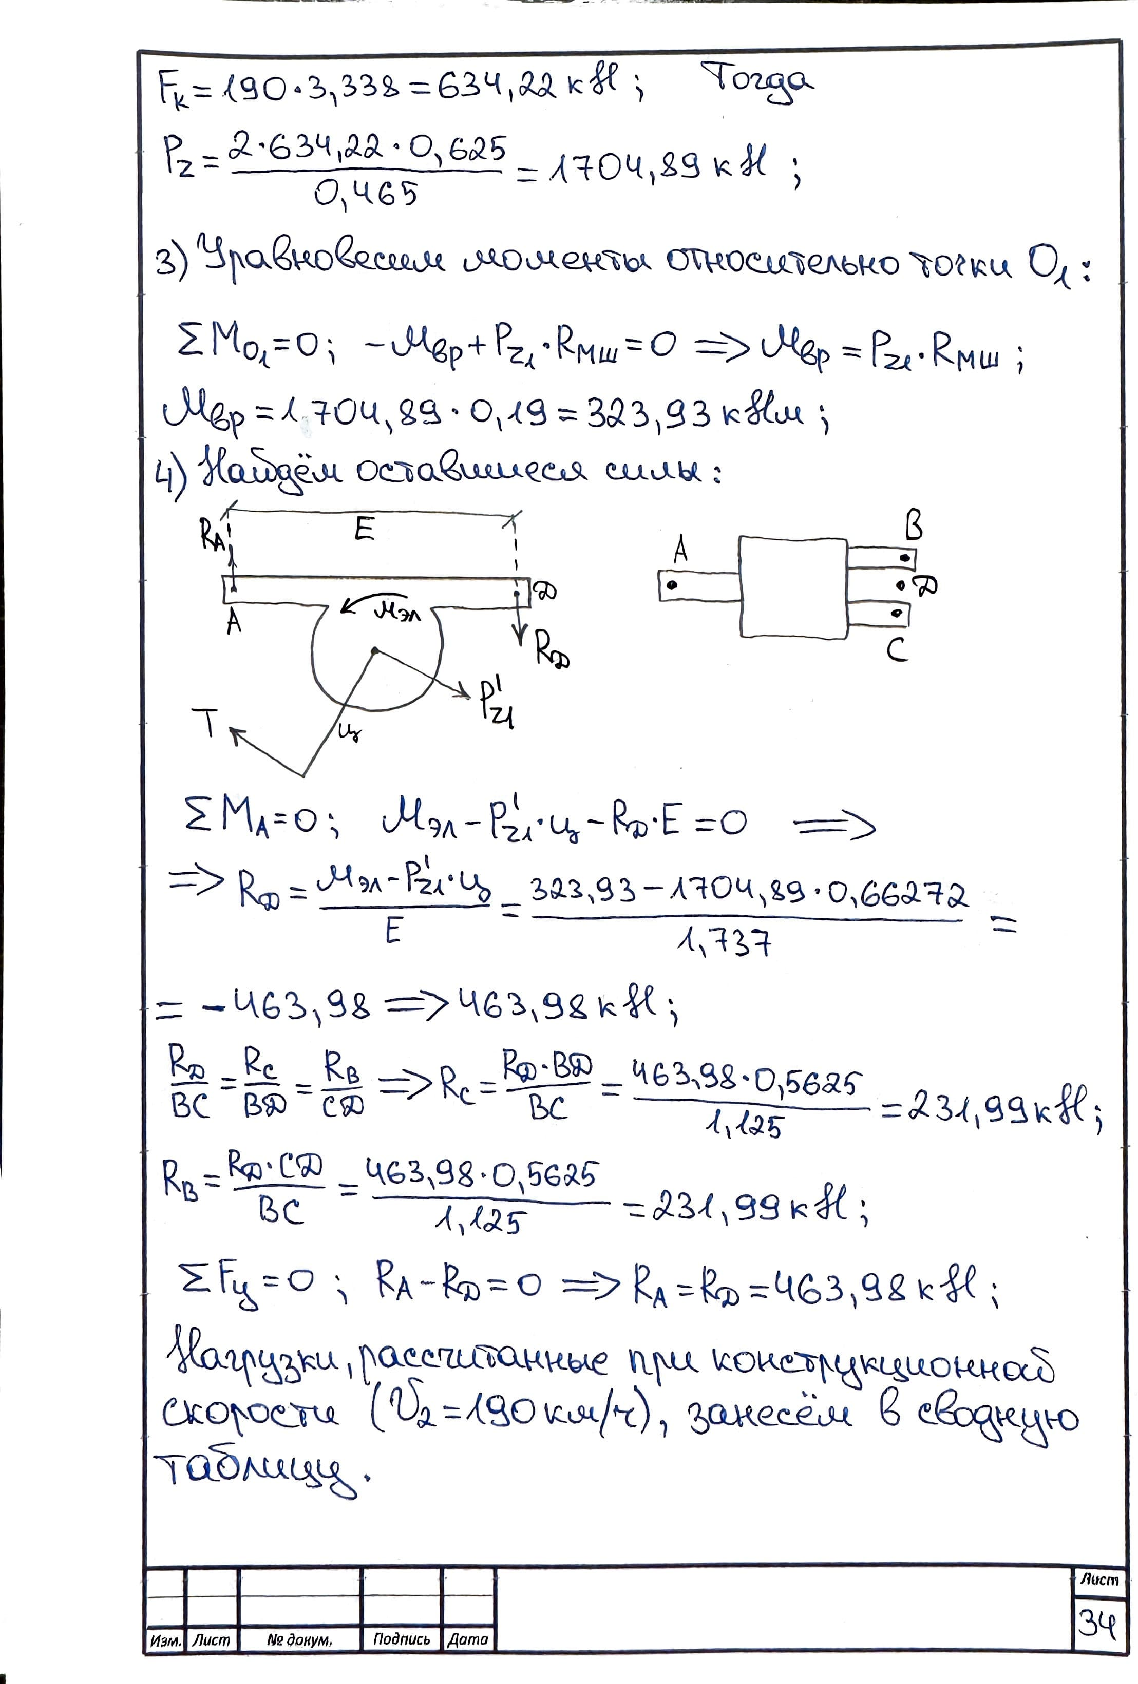 Fк = 190·3,338 = 634,22 кН; Тогда
Pz = 2·634,22·0,625 / 0,465 = 1704,89 кН;
3) Уравновесим моменты относительно точки O₁:
ΣM₀₁=0; -Mвр+Pz₁·Rмш=0 => Mвр=Pz₁·Rмш;
Mвр=1704,89·0,19=323,93 кНм;
4) Найдём оставшиеся силы:
RA' E
A Mэл Д
RД
Pz₁'
T ц
A B
Д
C
ΣMA=0; Mэл-Pz₁'·ц-RД·E=0 =>
=> RД = Mэл-Pz₁'·ц / E = 323,93-1704,89·0,66272 / 1,737 =
= -463,98 => 463,98 кН;
RД/BC = RC/BД = RB/CД => RC = RД·BД / BC = 463,98·0,5625 / 1,125 = 231,99 кН;
RB = RД·CД / BC = 463,98·0,5625 / 1,125 = 231,99 кН;
ΣFy=0; RA-RД=0 => RA=RД=463,98 кН;
Нагрузки, рассчитанные при конструкционной
скорости (V₂=190 км/ч), занесём в сводную
таблицу.
Изм. Лист № докум. Подпись Дата
Лист
34